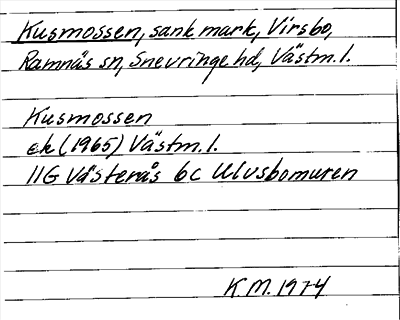 Kusmossen, sank mark, Virsbo,
Ramnäs sn, Snevringe hd, Västm. l.
Kusmossen
ek (1965) Västm. l.
11G Västerås 6c Ulvsbomuren
K M. 1974